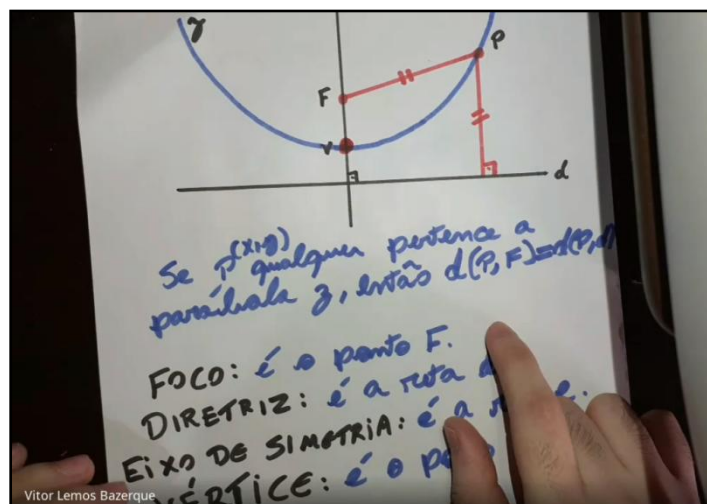 γ
P
F
V
d
Se P(x,y) qualquer pertence a
parábola γ, então d(P,F)=d(P,d)
FOCO: é o ponto F.
DIRETRIZ: é a reta
EIXO DE SIMETRIA: é a
VÉRTICE: é o
Vitor Lemos Bazerque